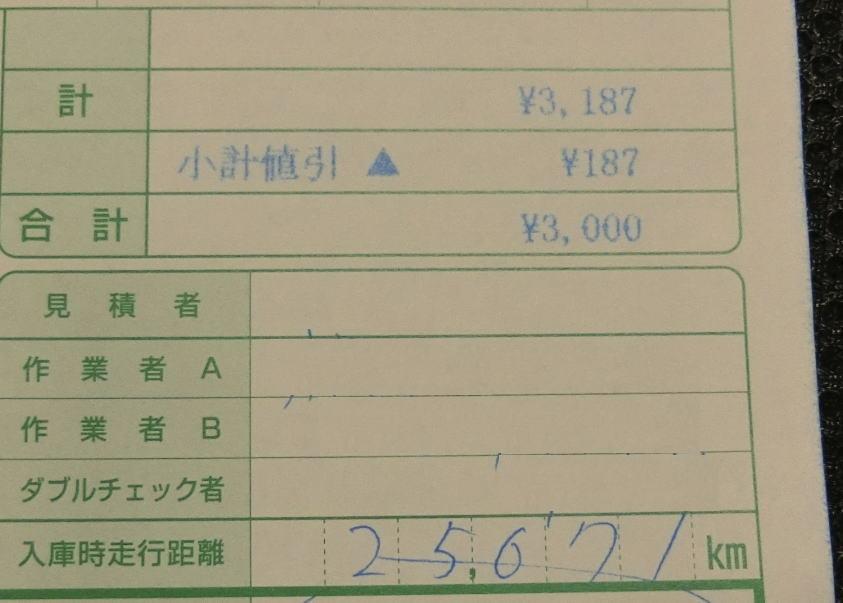 計 ¥3,187
小計値引 ▲ ¥187
合計 ¥3,000
見積者
作業者A
作業者B
ダブルチェック者
入庫時走行距離 25,671 km